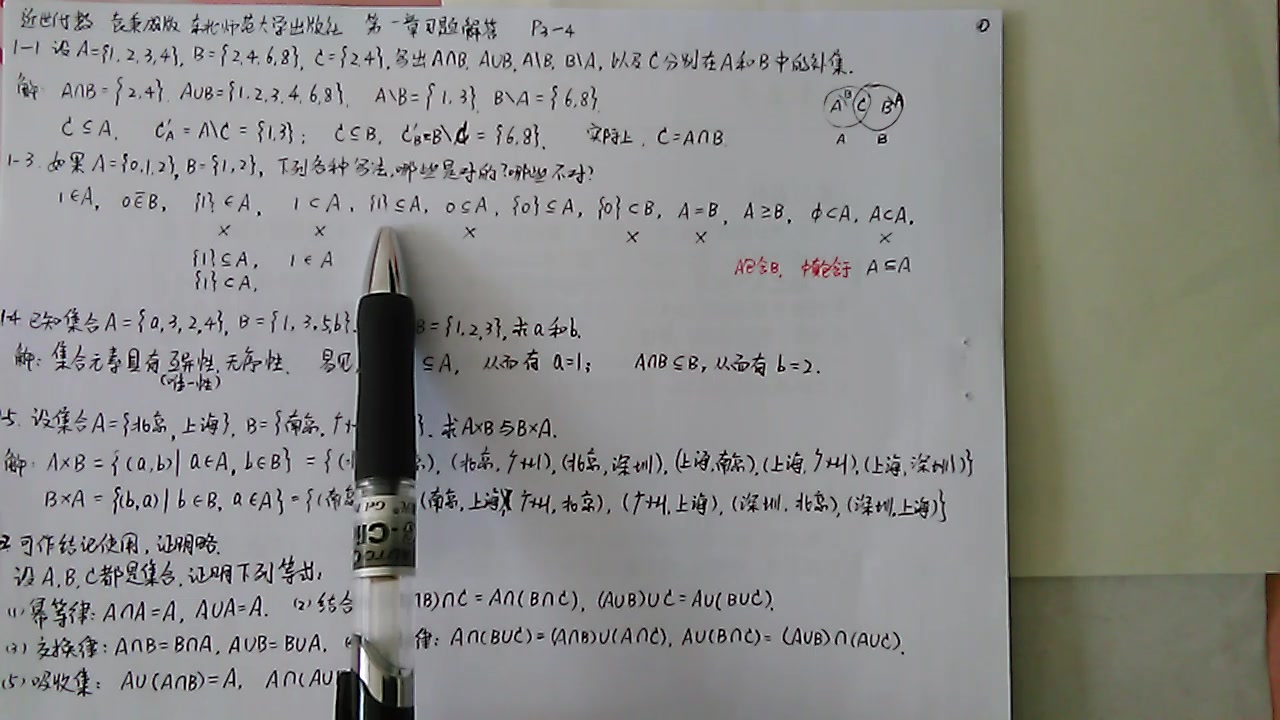 近世代数 袁秉成版 东北师范大学出版社 第一章习题解答 P3-4 ①
1-1 设A={1,2,3,4}, B={2,4,6,8}, C={2,4}, 写出A∩B, A∪B, A\B, B\A, 以及C分别在A和B中的补集.
解: A∩B={2,4}. A∪B={1,2,3,4,6,8}. A\B={1,3}; B\A={6,8}
A\B C B\A
C⊆A, C'A=A\C={1,3}; C⊆B, C'B=B\C={6,8}. 实际上, C=A∩B
A B
1-3. 如果A={0,1,2}, B={1,2}, 下列各种写法,哪些是对的?哪些不对?
1∈A, 0∈̅B, {1}∈A, 1⊂A, {1}⊆A, 0⊆A, {0}⊆A, {0}⊂B, A=B, A⊇B, ϕ⊂A, A⊂A,
× × × × × ×
{1}⊆A, 1∈A A包含B, A⊆A
{1}⊂A,
14 已知集合A={a,3,2,4}, B={1,3,5,b}. B={1,2,3},求a和b.
解: 集合元素具有互异性,无序性. 易见 ⊆A, 从而有a=1; A∩B⊆B,从而有b=2.
(唯一性)
5. 设集合A={北京,上海}, B={南京,广 }. 求A×B与B×A.
解: A×B={(a,b)|a∈A,b∈B}={( ), (北京,广州),(北京,深圳),(上海,南京),(上海,广州),(上海,深圳)}
B×A={(b,a)|b∈B,a∈A}={(南京 (南京,上海) 广州,北京), (广州,上海),(深圳,北京),(深圳,上海)}
可作结论使用,证明略.
设A,B,C都是集合,证明下列等式:
(1) 幂等律: A∩A=A, A∪A=A. (2) 结合 ∩B)∩C=A∩(B∩C), (A∪B)∪C=A∪(B∪C).
(3) 交换律: A∩B=B∩A, A∪B=B∪A, 律: A∩(B∪C)=(A∩B)∪(A∩C), A∪(B∩C)=(A∪B)∩(A∪C).
(5) 吸收集: A∪(A∩B)=A, A∩(A∪